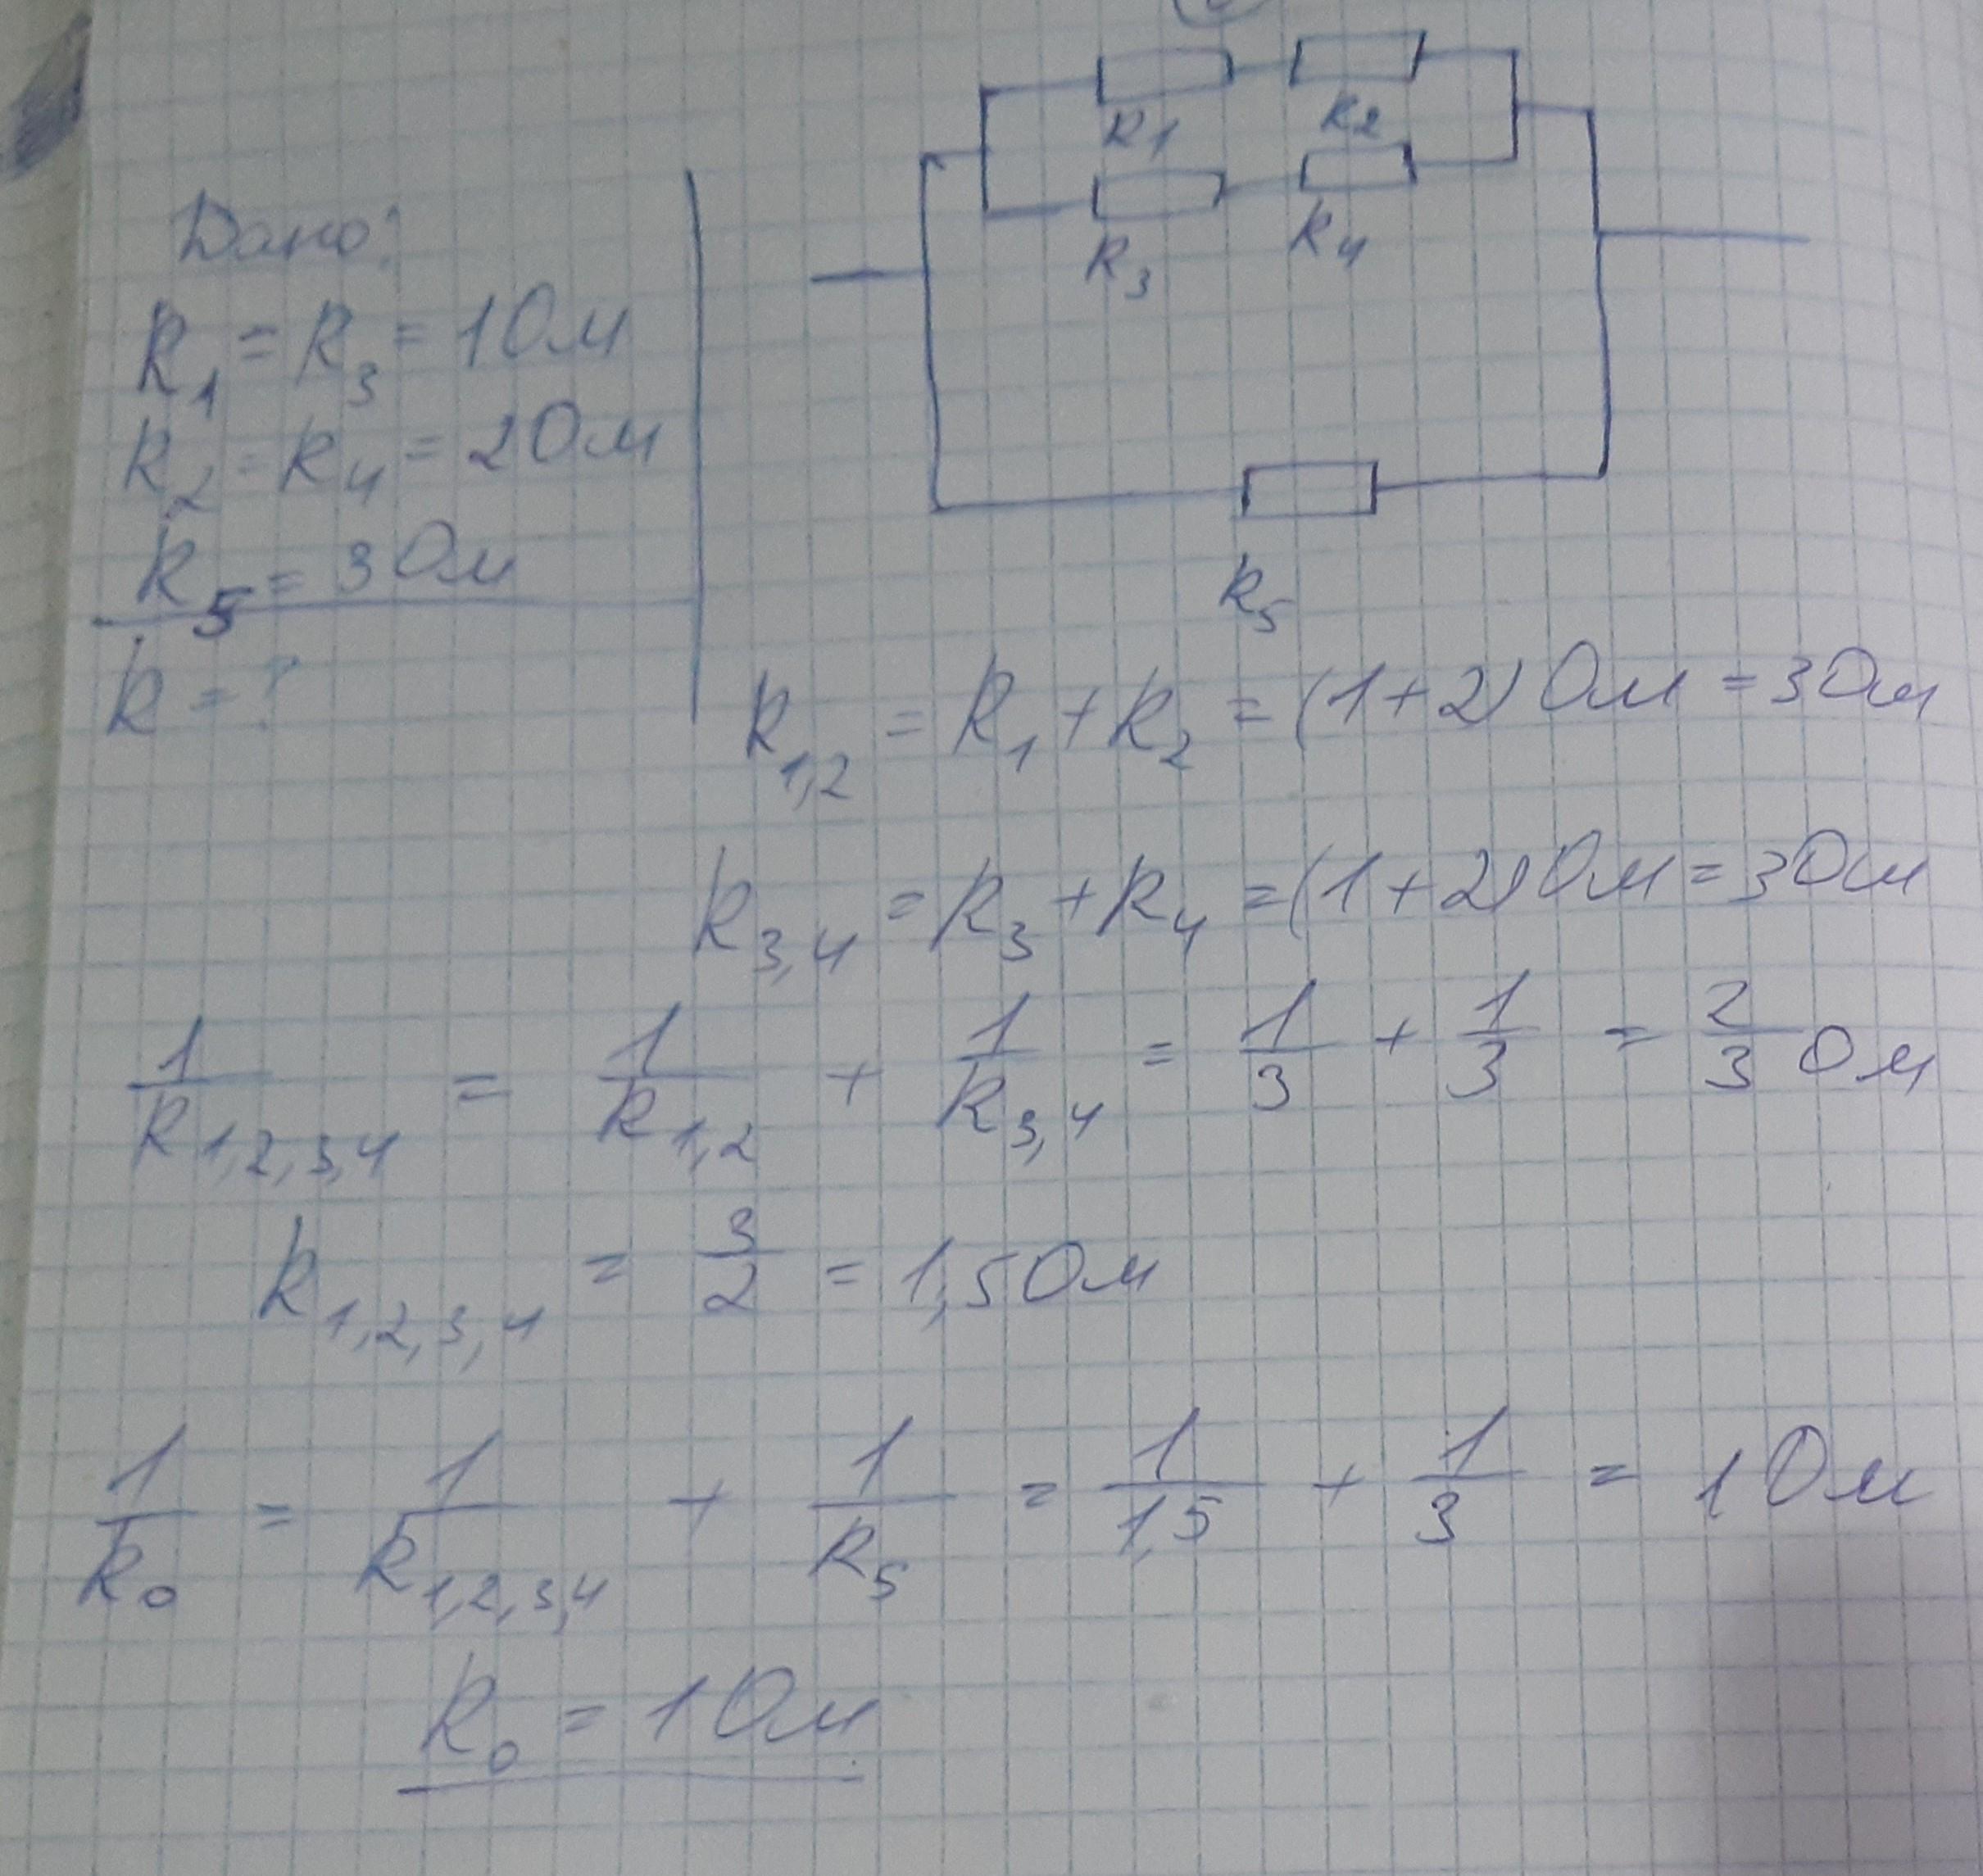 R1 R2
R3 R4
Дано:
R1 = R3 = 1 Ом
R2 = R4 = 2 Ом
R5 = 3 Ом
R = ?
R5
R1,2 = R1 + R2 = (1+2) Ом = 3 Ом
R3,4 = R3 + R4 = (1+2) Ом = 3 Ом
1/R1,2,3,4 = 1/R1,2 + 1/R3,4 = 1/3 + 1/3 = 2/3 Ом
R1,2,3,4 = 3/2 = 1,5 Ом
1/R0 = 1/R1,2,3,4 + 1/R5 = 1/1,5 + 1/3 = 1 Ом
R0 = 1 Ом